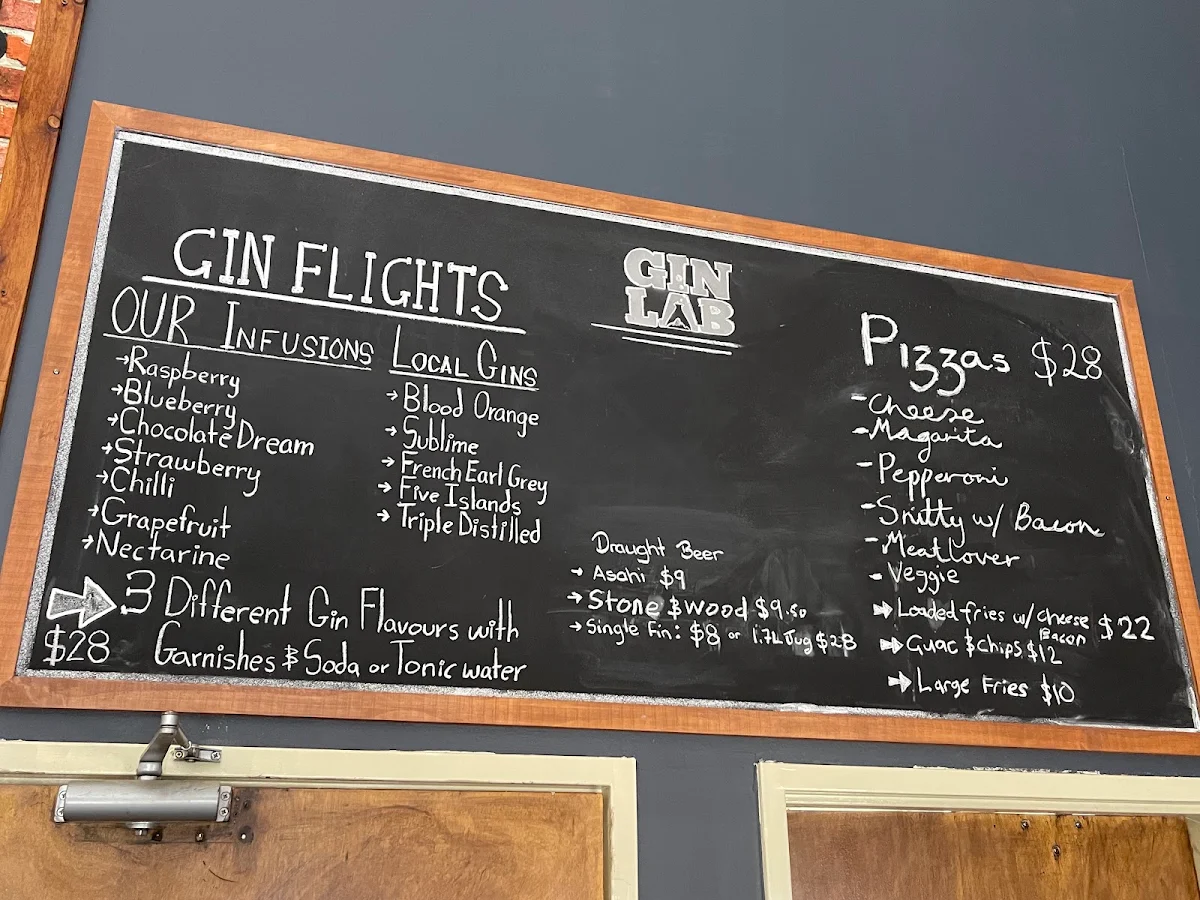 GIN FLIGHTS
OUR INFUSIONS
→Raspberry
→Blueberry
→Chocolate Dream
→Strawberry
→Chilli
→Grapefruit
→Nectarine
LOCAL GINS
→ Blood Orange
→ Sublime
→ French Earl Grey
→ Five Islands
→ Triple Distilled
3 Different Gin Flavours with
$28 Garnishes & Soda or Tonic water
GIN
LAB
Draught Beer
→ Asahi $9
→ Stone & Wood $9.50
→ Single Fin: $8 or 1.7L Jug $28
Pizzas $28
- Cheese
- Magarita
- Pepperoni
- Snitty w/ Bacon
- Meatlover
- Veggie
→ Loaded fries w/ cheese $22
Bacon
→ Guac & chips $12
→ Large Fries $10